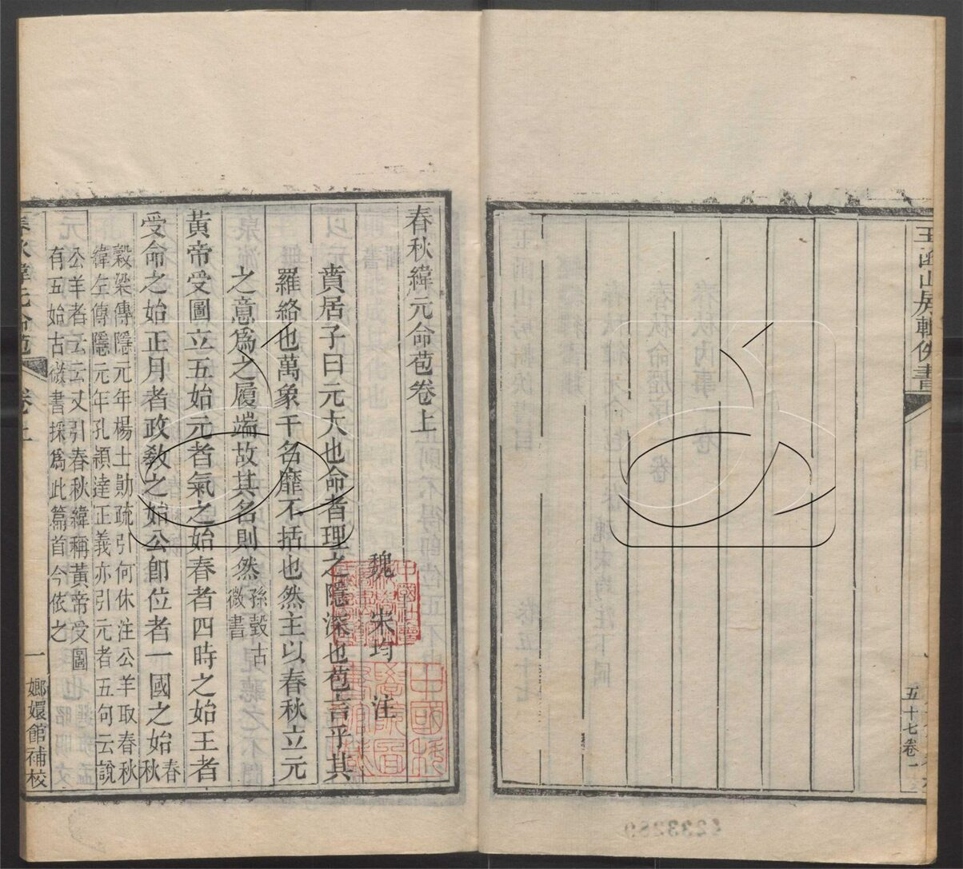 玉函山房輯佚書
五十七卷
春秋緯元命苞卷上
魏 宋均 注
賁居子曰元大也命者理之隱深也苞言乎其
羅絡也萬象千名靡不括也然主以春秋立元
之意爲之履端故其名則然孫瑴古
微書
黃帝受圖立五始元者氣之始春者四時之始王者
受命之始正月者政敎之始公卽位者一國之始春
秋
榖梁傳隱元年楊士勛疏引何休注公羊取春秋
緯左傳隱元年孔穎達正義亦引元者五何云說
公羊者云云又引春秋緯稱黃帝受圖
有五始古微書採爲此篇首今依之
春秋緯元命苞
卷上
一
嫏嬛館補校
4233260